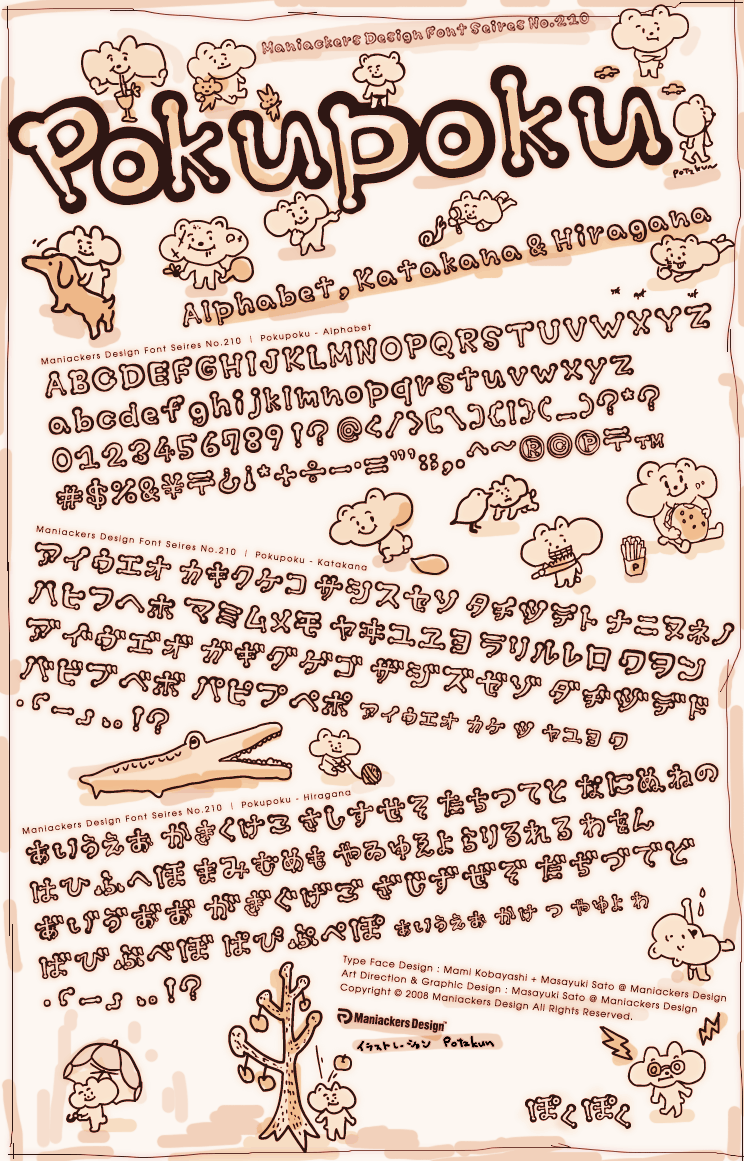 Maniackers Design Font Seires No.210
Pokupoku
Potakun
Alphabet, Katakana & Hiragana
Maniackers Design Font Seires No.210 | Pokupoku - Alphabet
ABCDEFGHIJKLMNOPQRSTUVWXYZ
abcdefghijklmnopqrstuvwxyz
0123456789!?@</>[\]{|}(_)?*?
#$%&¥〒¿¡*+÷−·=""';:,.^~®©℗〒™
Maniackers Design Font Seires No.210 | Pokupoku - Katakana
アイウエオ カキクケコ サシスセソ タチツテト ナニヌネノ
ハヒフヘホ マミムメモ ヤヰユヱヨ ラリルレロ ワヲン
ガギグゲゴ ザジズゼゾ ダヂヅデド
バビブベボ パピプペポ アイウエオ カケ ツ ヤユヨ ワ
.「ー」、。!?
P
Maniackers Design Font Seires No.210 | Pokupoku - Hiragana
あいうえお かきくけこ さしすせそ たちつてと なにぬねの
はひふへほ まみむめも やゐゆゑよ らりるれろ わをん
がぎぐげご ざじずぜぞ だぢづでど
ばびぶべぼ ぱぴぷぺぽ あいうえお かけ つ やゆよ わ
.「ー」、。!?
Type Face Design : Mami Kobayashi + Masayuki Sato @ Maniackers Design
Art Direction & Graphic Design : Masayuki Sato @ Maniackers Design
Copyright © 2008 Maniackers Design All Rights Reserved.
Maniackers Design™
イラストレーション Potakun
ぽくぽく